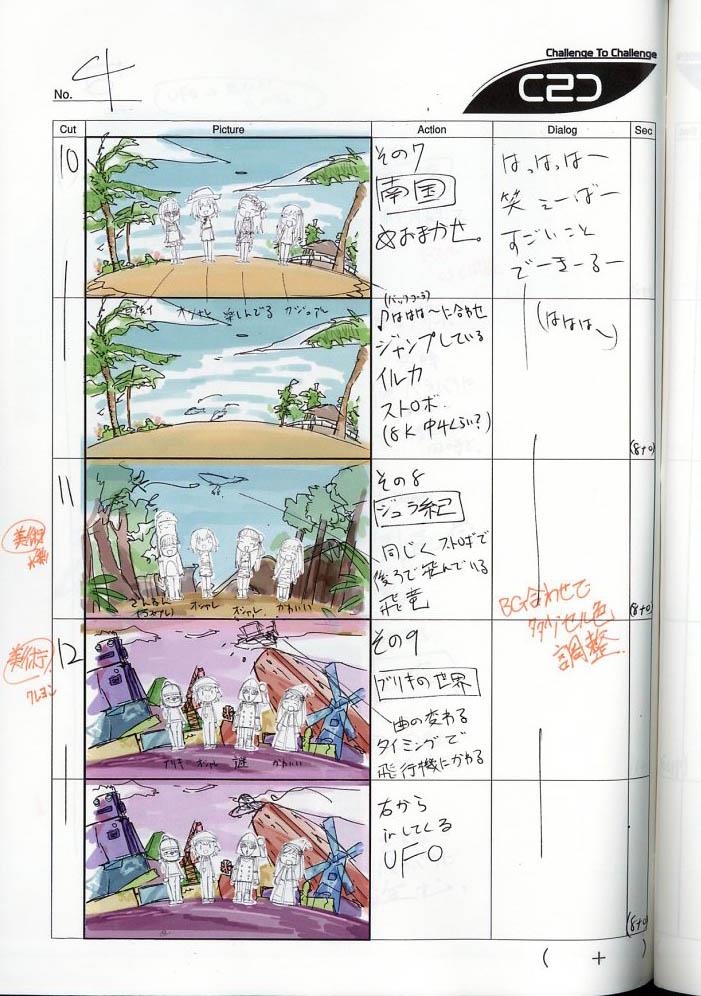 Challenge To Challenge
C2C
No. 4
Cut Picture Action Dialog Sec
10
その7
南国
めおまかせ。
はっはっはー
笑えーばー
すごいこと
でーきーるー
オシャレ 楽しんでる カジュアル
(バックコーラス)
♪ははは〜に合わせ
ジャンプしている
イルカ
ストロボ.
(8K 中4くらい?)
(ははは〜)
(8+0)
11
その8
ジュラ紀
同じくストロボで
後ろで飛んでいる
飛竜
ざんねん オシャレ オシャレ かわいい
(8+0)
美術
BG合わせで
セル色
調整.
12
美術
クレヨン
その9
ブリキの世界
曲の変わる
タイミングで
飛行機にかわる
ブリキ オシャレ 謎 かわいい
右から
inしてくる
UFO
(8+0)
( + )